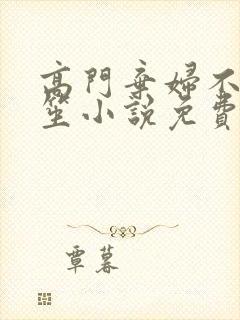 高門棄婦不
笙小說免費
覃暮